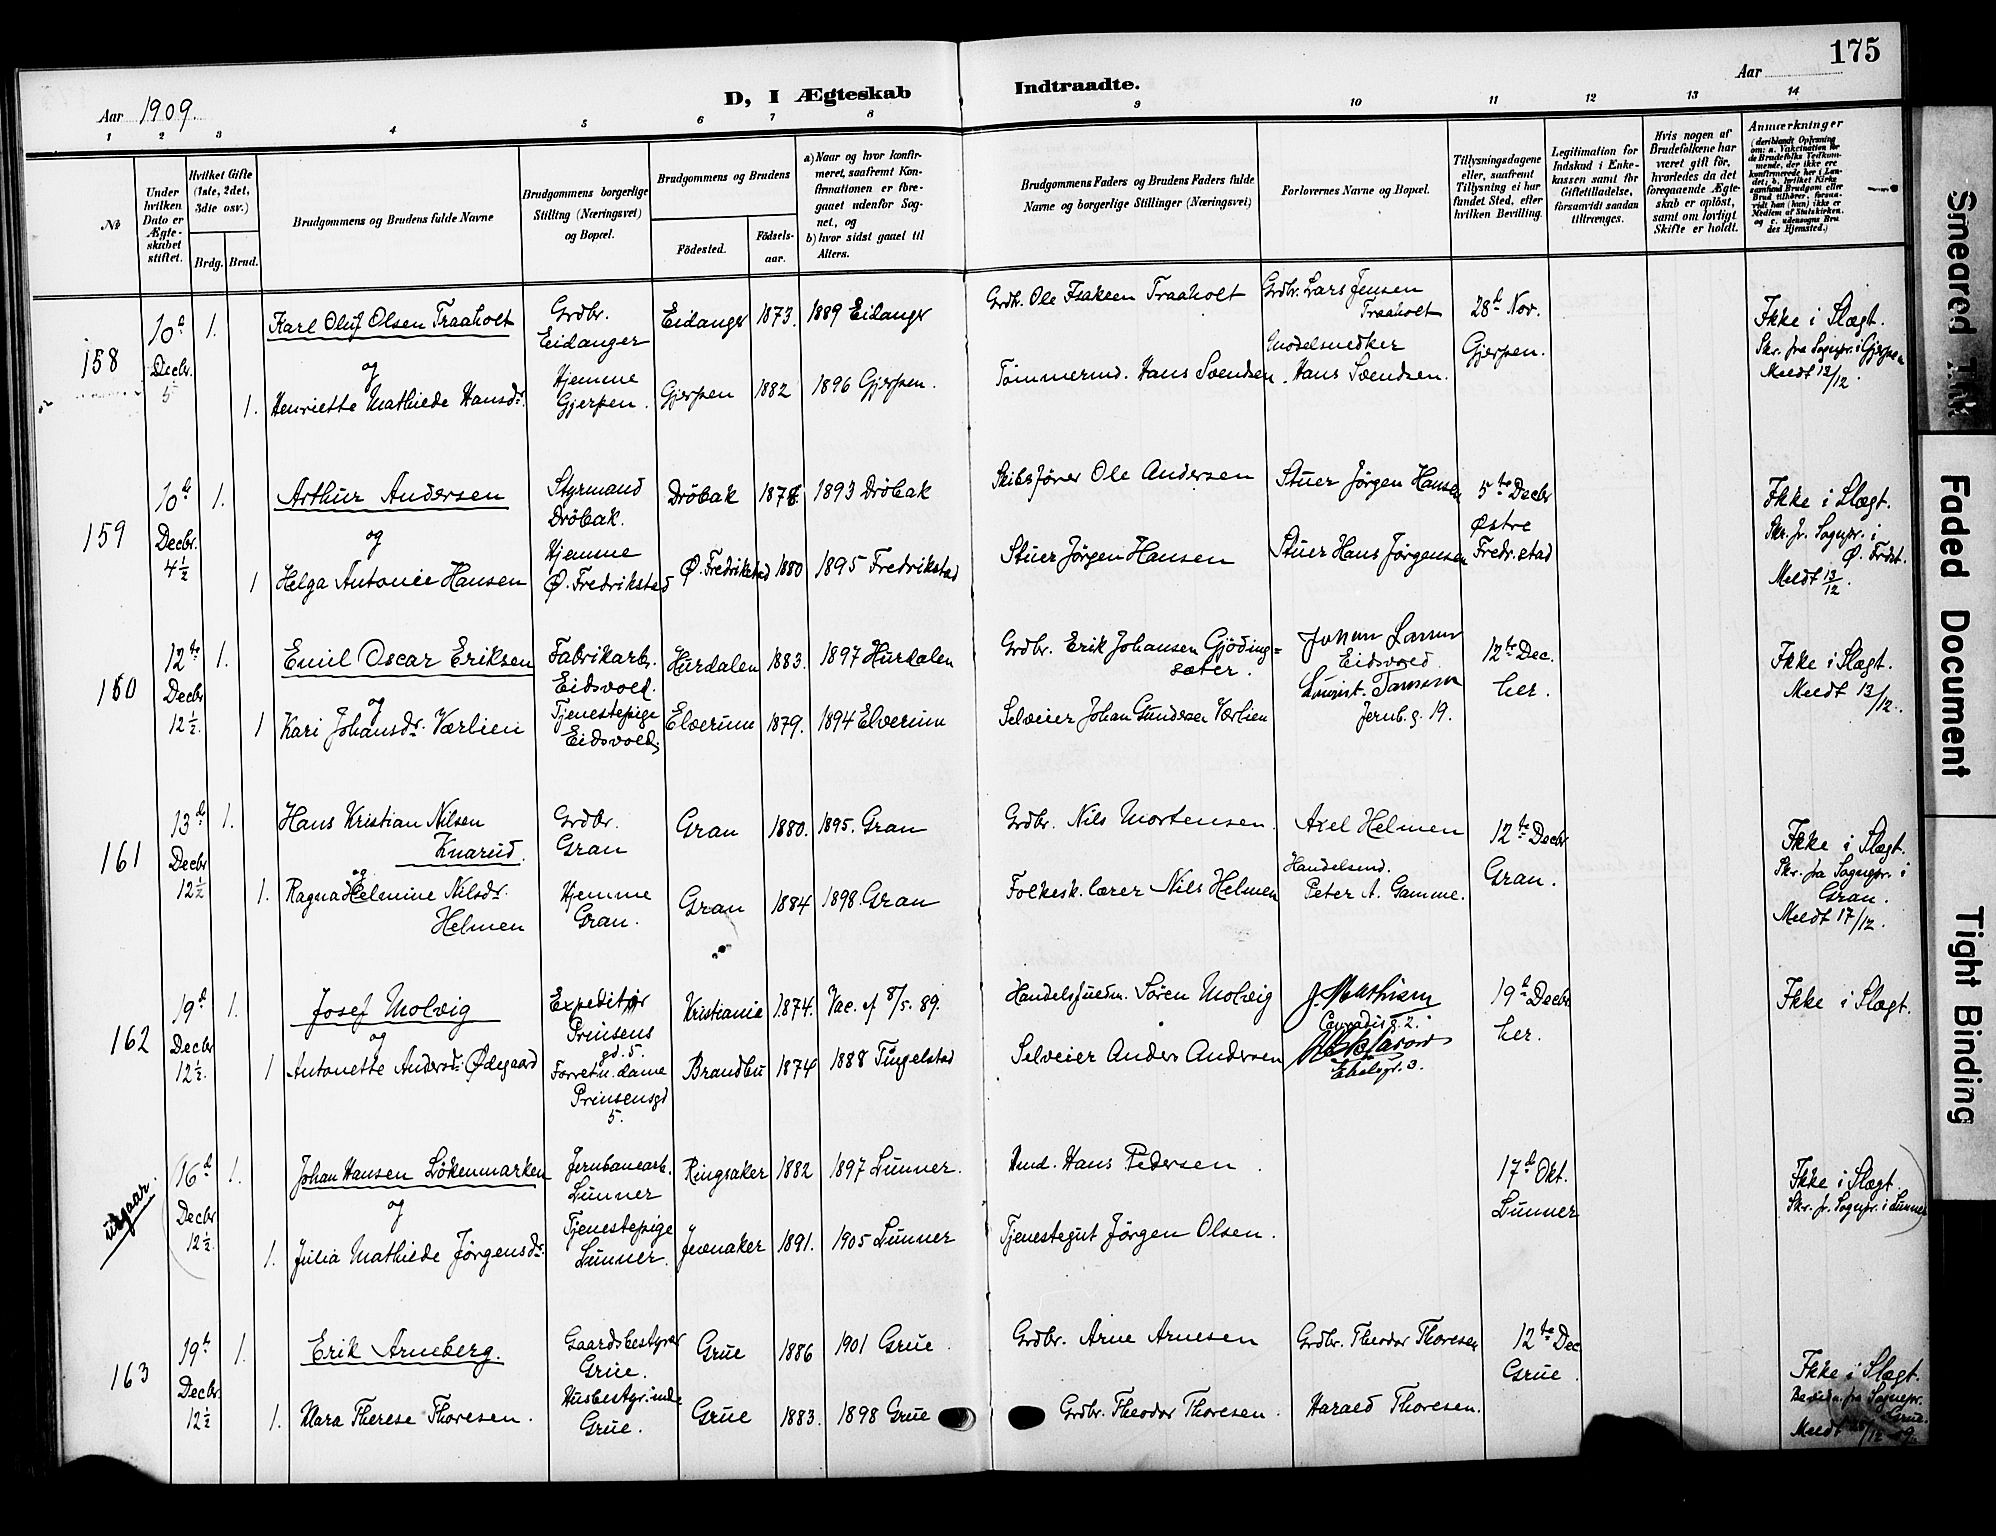 175
Aar 1909.
D, I Ægteskab Indtraadte.
Aar
1 2 3 4 5 6 7 8 9 10 11 12 13 14
№
Under hvilken Dato er Ægteskabet stiftet.
Hvilket Gifte (1ste, 2det, 3die osv.)
Brdg. Brud.
Brudgommens og Brudens fulde Navne
Brudgommens borgerlige Stilling (Næringsvei) og Bopæl.
Brudgommens og Brudens
Födested.
Födselsaar.
a) Naar og hvor konfirmeret, saafremt Konfirmationen er foregaaet udenfor Sognet, og
b) hvor sidst gaaet til Alters.
Brudgommens Faders og Brudens Faders fulde Navne og borgerlige Stillinger (Næringsvei)
Forlovernes Navne og Bopæl.
Tillysningsdagene eller, saafremt Tillysning ei har fundet Sted, efter hvilken Bevilling.
Legitimation for Indskud i Enkekassen samt for Giftetilladelse, forsaavidt saadan tiltrænges.
Hvis nogen af Brudefolkene har været gift för, hvorledes da det foregaaende Ægteskab er oplöst, samt om lovligt Skifte er holdt.
Anmærkninger
158
10d Decbr. 5
1.
Karl Oluf Olsen Traaholt
Grdbr. Eidanger
Eidanger 1873. 1889 Eidanger
Grdbr. Ole Isaksen Traaholt
Grdbr. Lars Jensen Traaholt
28d Nov. Gjerpen.
Ikke i Slægt.
Skr. fra Sognpr. i Gjerpen
Meldt 12/12.
og
1. Henriette Mathilde Hansdr.
Hjemme Gjerpen.
Gjerpen 1882 1896 Gjerpen.
Tömmermd. Hans Svendsen
Modelsnedker Hans Svendsen.
159
10de Decbr. 4½
1.
Arthur Andersen
Styrmand Dröbak.
Dröbak 1878 1893 Dröbak
Skibsförer Ole Andersen
Stuer Jørgen Hansen
5te Decbr Østre Fredr.stad
Ikke i Slægt.
Skr. fr. Sognpr. i Ø. Frdst.
Meldt 13/12.
og
1 Helga Antonie Hansen
Hjemme Ø. Fredrikstad
Ø. Fredrikstad 1880 1895 Fredrikstad
Stuer Jørgen Hansen
Stuer Hans Jørgensen
160
12te Decbr 12½.
1.
Emil Oscar Eriksen
Fabrikarb. Eidsvold.
Hurdalen 1883. 1897 Hurdalen
Grdbr. Erik Johansen Gjödingsæter.
Johan Larsen Eidsvold.
12te Dec. her.
Ikke i Slægt.
Meldt 13/12.
og
1 Kari Johansdr. Værlien
Tjenestepige Eidsvold
Elverum 1879. 1894 Elverum
Selveier Johan Gundersen Værlien
Jernb.g. 19.
161
13d Decbr 12½
1.
Hans Kristian Nilsen Knarud.
Grdbr. Gran
Gran 1880. 1895. Gran
Grdbr. Nils Mortensen.
Axel Helmen
12te Decbr Gran.
Ikke i Slægt.
Skr. fra Sognepr. i Gran.
Meldt 17/12.
og
1. Ragna Helmine Nilsdr. Helmen
Hjemme Gran.
Gran 1884 1898. Gran
Folkesk.lærer Nils Helmen
Handelsmd. Peter A. Gamme.
162
19d Decbr 12½.
1.
Josef Molvig
Expeditör Prinsens gd. 5.
Kristiania 1874. Vac. af 8/5. 89.
Handelsfuldm. Sören Molvig
J. Mathisen
19d Decbr her.
Ikke i Slægt.
og
1 Antonette Andersdr. Ødegaard
Forretn.dame Prinsensgd 5.
Brandbu 1874 1888 Tingelstad
Selveier Anders Andersen
utgaar.
16d Decbr 12½.
1.
Johan Hansen Lökenmarken
Jernbanearb. Lunner
Ringsaker 1882 1897 Lunner.
Hmd. Hans Pedersen
17d Okt. Lunner
Ikke i Slægt.
Skr. fr. Sognpr. i Lunner
og
1. Julia Mathilde Jørgensdr.
Tjenestepige Lunner.
Jevnaker 1891. 1905 Lunner
Tjenestegut Jørgen Olsen.
163
19de Decbr. 12½
1.
Erik Arneberg.
Gaardsbestyrer Grue.
Grue 1886 1901 Grue.
Grdbr. Arne Arnesen
Grdbr. Theodor Thoresen
12te Dec Grue
Ikke i Slægt.
1. Mara Therese Thoresen.
Husbestyrinde Grue.
Grue 1883. 1898 Grue
Grdbr. Theodor Thoresen.
Harald Thoresen.
Smeared Ink
Faded Document
Tight Binding